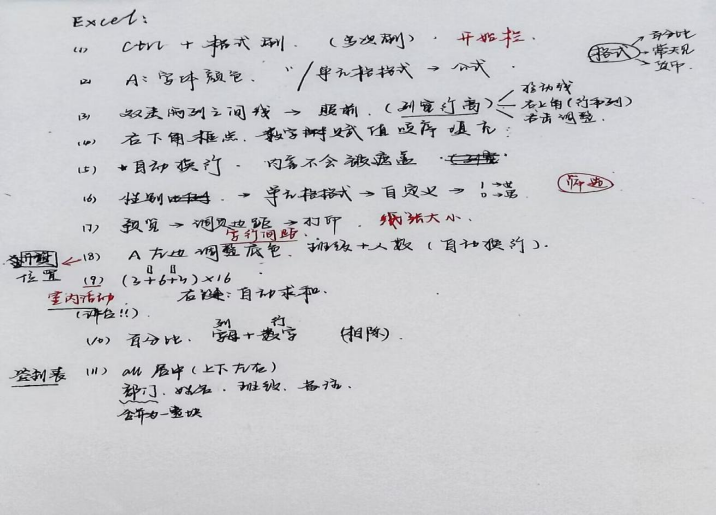 Excel:
(1) Ctrl + 格式刷. (多次刷) · 开始栏.
格式 百分比 常见 文中.
(2) A: 字体颜色. 单元格格式 → 公式.
(3) 双击两列之间线 → 照前. (列宽行高) 移动线 右上角(行和列) 右击调整.
(4) 右下角框点. 数字 式值顺序填充;
(5) 自动换行. 内容不会被遮盖
(6) 性别 → 单元格格式 → 自定义 → 1→男 0→女 筛选
(7) 预览 → 调页边距 → 打印. 纸张大小.
字行间距
(8) A左边调整底色. 班级+人数(自动换行).
位置 (9) (3+6+3)×16
室内活动 右键: 自动求和.
(评台!!)
列 行
(10) 百分比. 字母+数字 (相除)
签到表 (11) all 居中(上下左右)
部门. 姓名. 班级. 备注.
合并为一整块